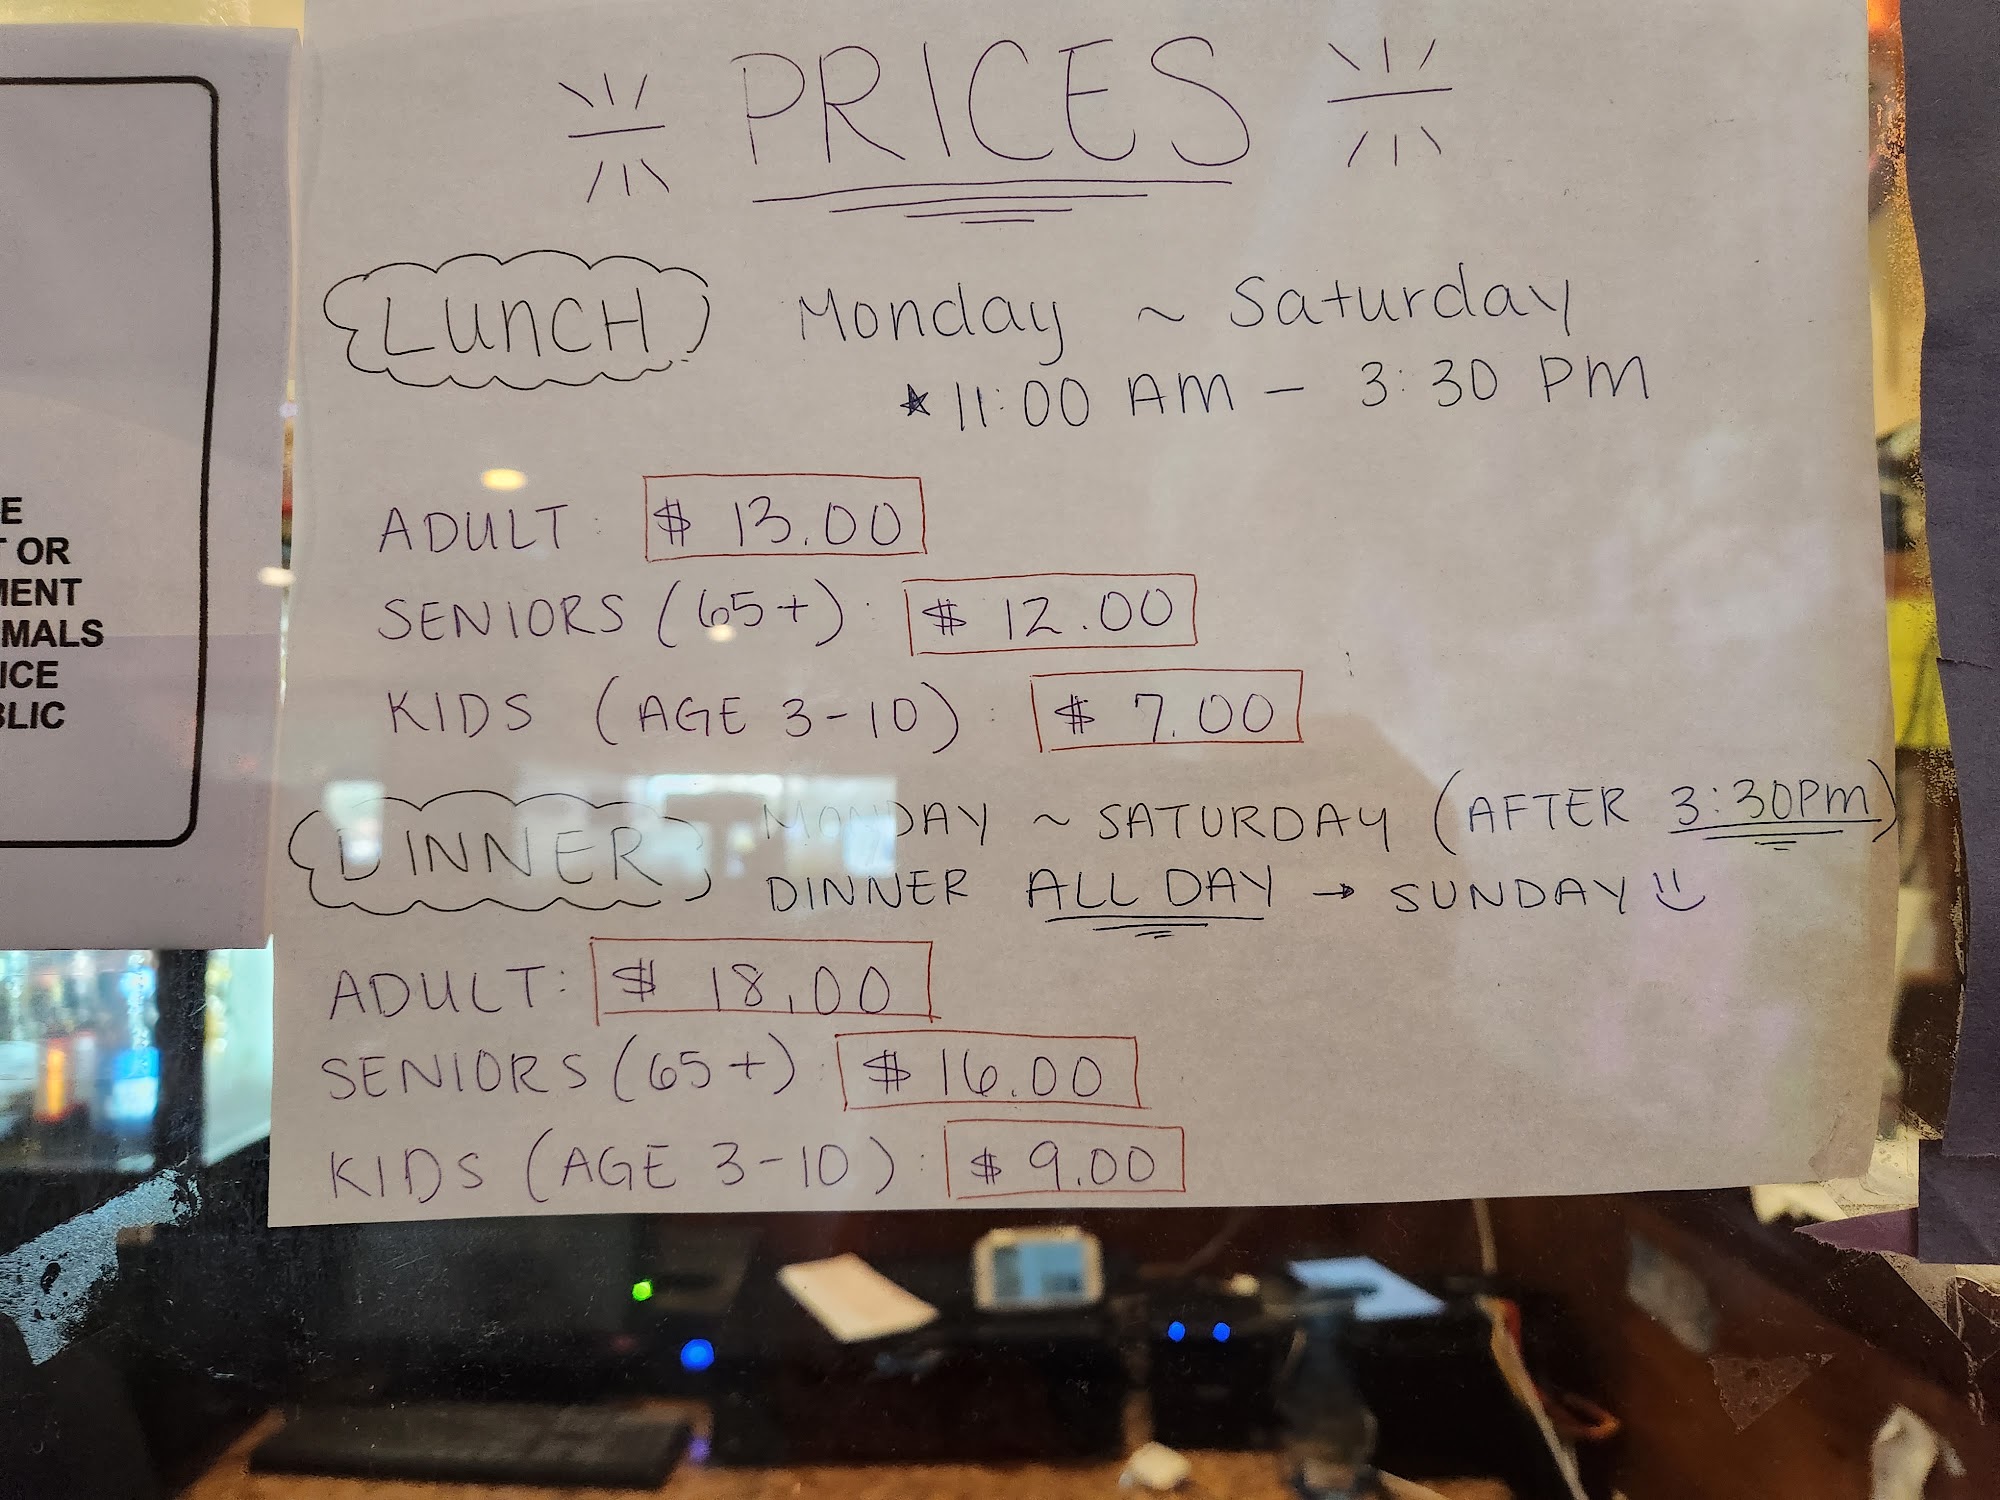 PRICES
LUNCH Monday ~ Saturday
★ 11:00 AM - 3:30 PM
ADULT: $ 13.00
SENIORS (65+): $ 12.00
KIDS (AGE 3-10): $ 7.00
DINNER MONDAY ~ SATURDAY (AFTER 3:30PM)
DINNER ALL DAY → SUNDAY
ADULT: $ 18.00
SENIORS (65+): $ 16.00
KIDS (AGE 3-10): $ 9.00
E
OR
MENT
MALS
ICE
BLIC